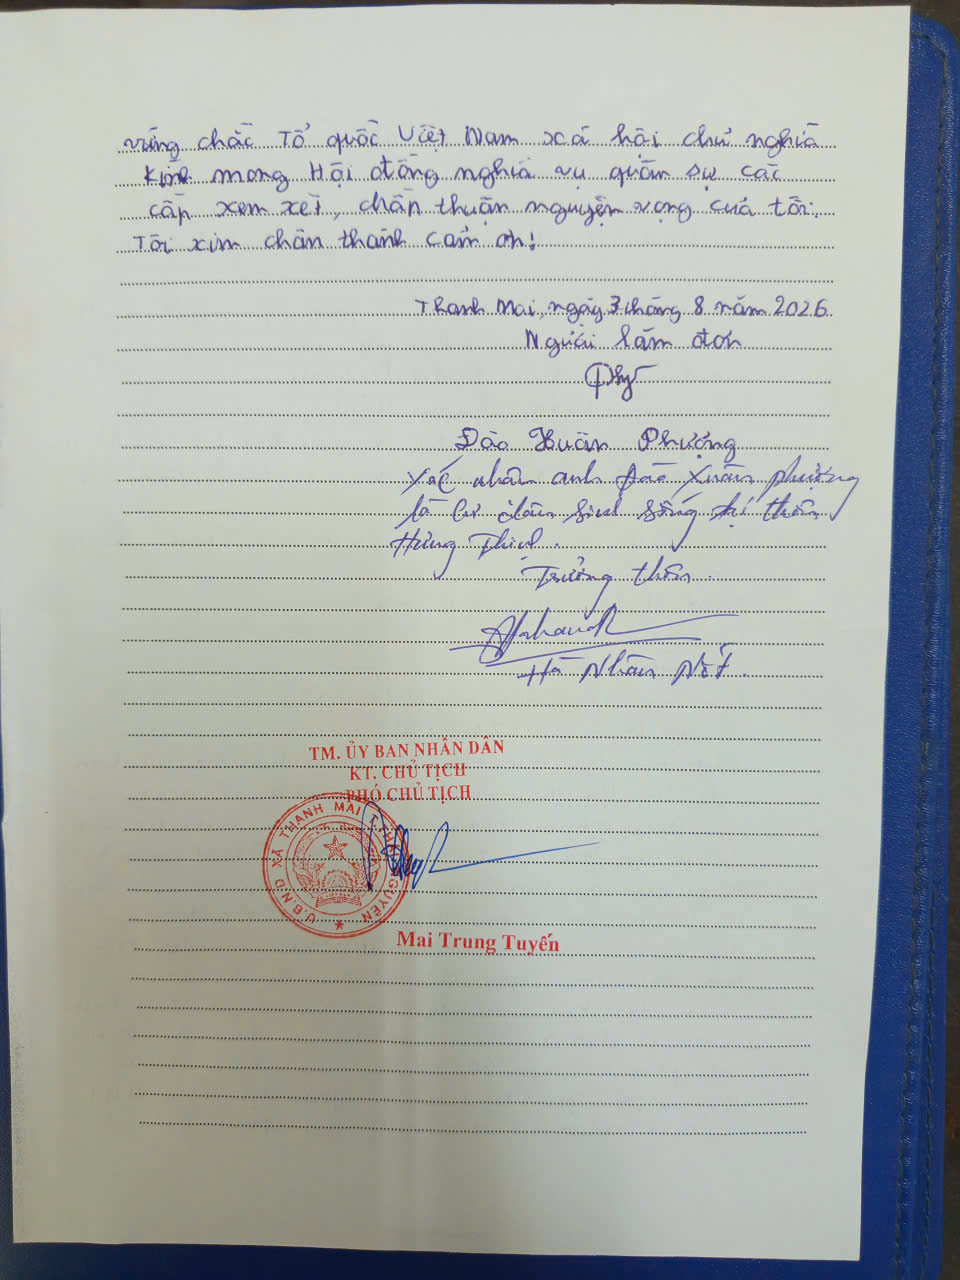 vững chắc Tổ quốc Việt Nam xã hội chủ nghĩa
Kính mong Hội đồng nghĩa vụ quân sự các
cấp xem xét, chấp thuận nguyện vọng của tôi.
Tôi xin chân thành cảm ơn!
Thanh Mai, ngày 3 tháng 8 năm 2026
Người làm đơn
Đào Xuân Phượng
Xác nhận anh Đào Xuân Phượng
là cư dân sinh sống tại thôn
Hưng Thịnh.
Trưởng thôn.
Hà Nhân
TM. ỦY BAN NHÂN DÂN
KT. CHỦ TỊCH
PHÓ CHỦ TỊCH
U.B.N.D XÃ THANH MAI T.THÁI NGUYÊN
Mai Trung Tuyến